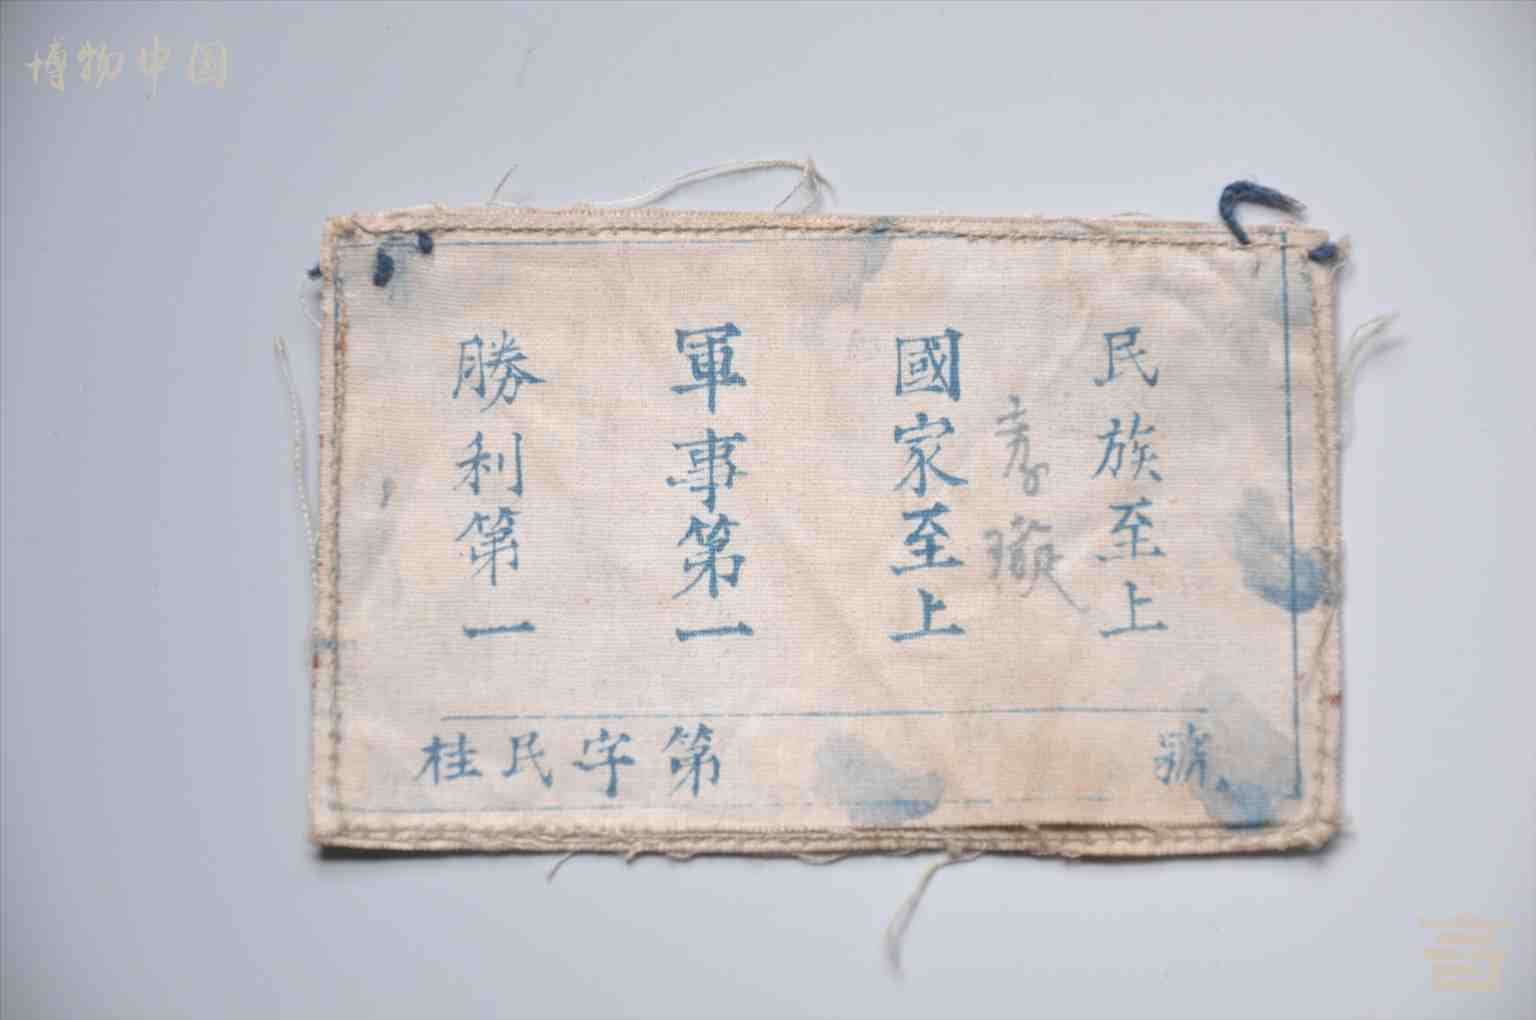 博物中国
民族至上
國家至上
軍事第一
勝利第一
桂民字第 號